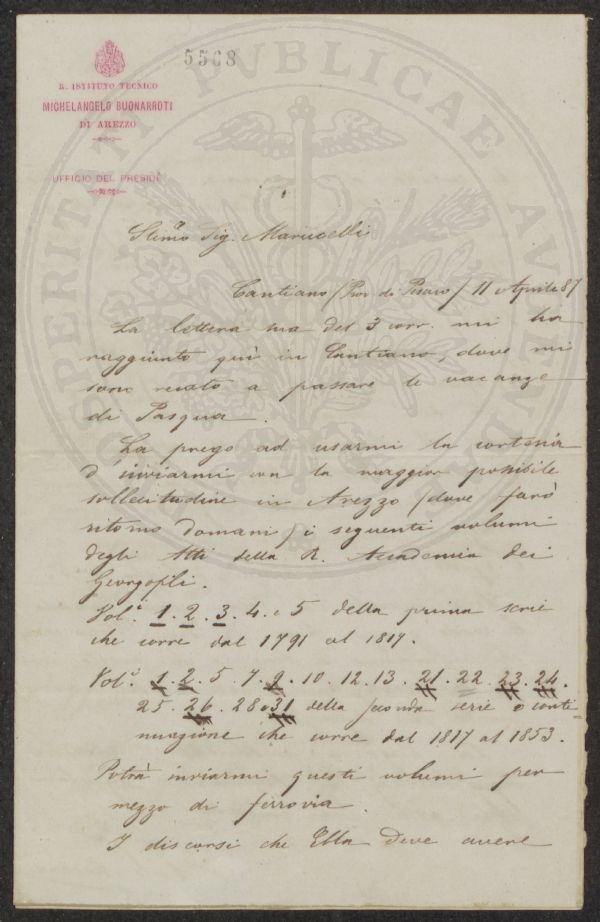 5568
R. ISTITUTO TECNICO
MICHELANGELO BUONARROTI
DI AREZZO
UFFICIO DEL PRESIDE
PROSPERITATI PUBLICAE AUGENDAE
Stimo Sig. Marucelli
Cantiano (Prov. di Pesaro) 11 Aprile 87
La lettera sua del 3 corr. mi ha
raggiunto quì in Cantiano, dove mi
sono recato a passare le vacanze
di Pasqua.
La prego ad usarmi la cortesia
d'inviarmi con la maggior possibile
sollecitudine in Arezzo (dove farò
ritorno domani) i seguenti volumi
degli Atti della R. Accademia dei
Georgofili.
Vol.i 1. 2. 3. 4. e 5 della prima serie
che corre dal 1791 al 1817.
Vol.i 1. 2. 5. 7. 9. 10. 12. 13. 21. 22. 23. 24.
25. 26. 28 e 31 della seconda serie o conti
nuazione che corre dal 1817 al 1853.
Potrà inviarmi questi volumi per
mezzo di ferrovia.
I discorsi che Ella deve avere